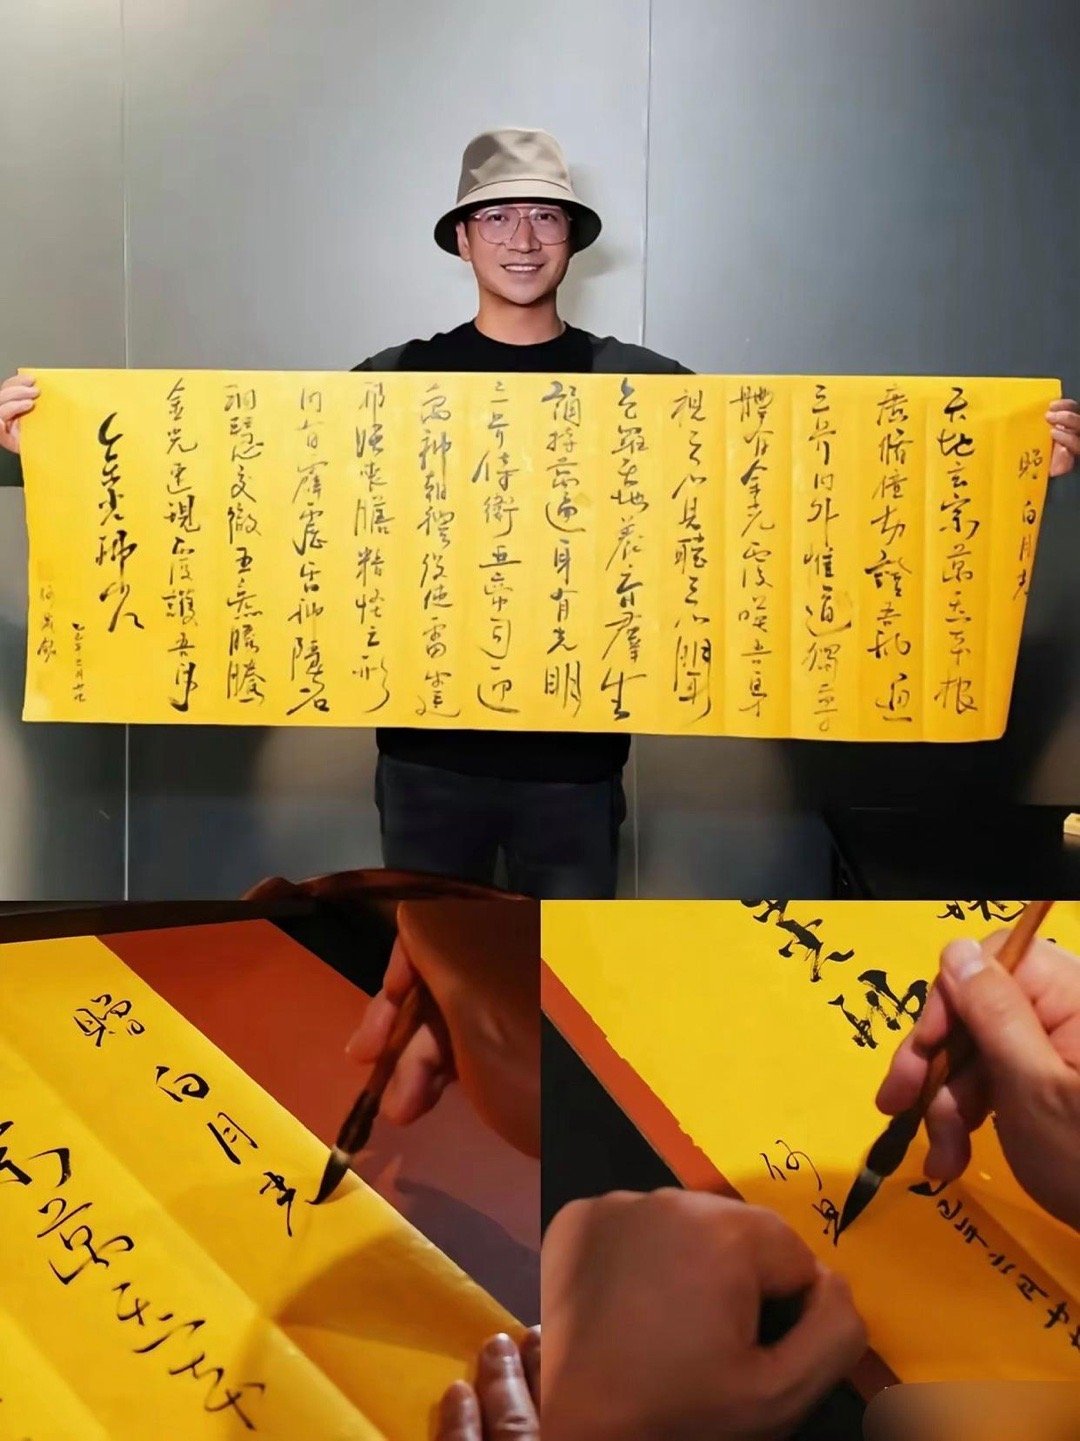 贈 白月光
天地玄宗萬炁本根
廣修億劫證吾神通
三界內外惟道獨尊
體有金光覆映吾身
視之不見聽之不聞
包羅天地養育羣生
誦持萬遍身有光明
三界侍衛五帝司迎
萬神朝禮役使雷霆
喪膽精怪亡形
內有霹靂雷神隱名
洞慧交徹五炁騰騰
金光速現覆護吾身
金光神咒
乙巳年三月
何
贈 白月光
宗萬炁本
金光神咒
何
乙巳年三月